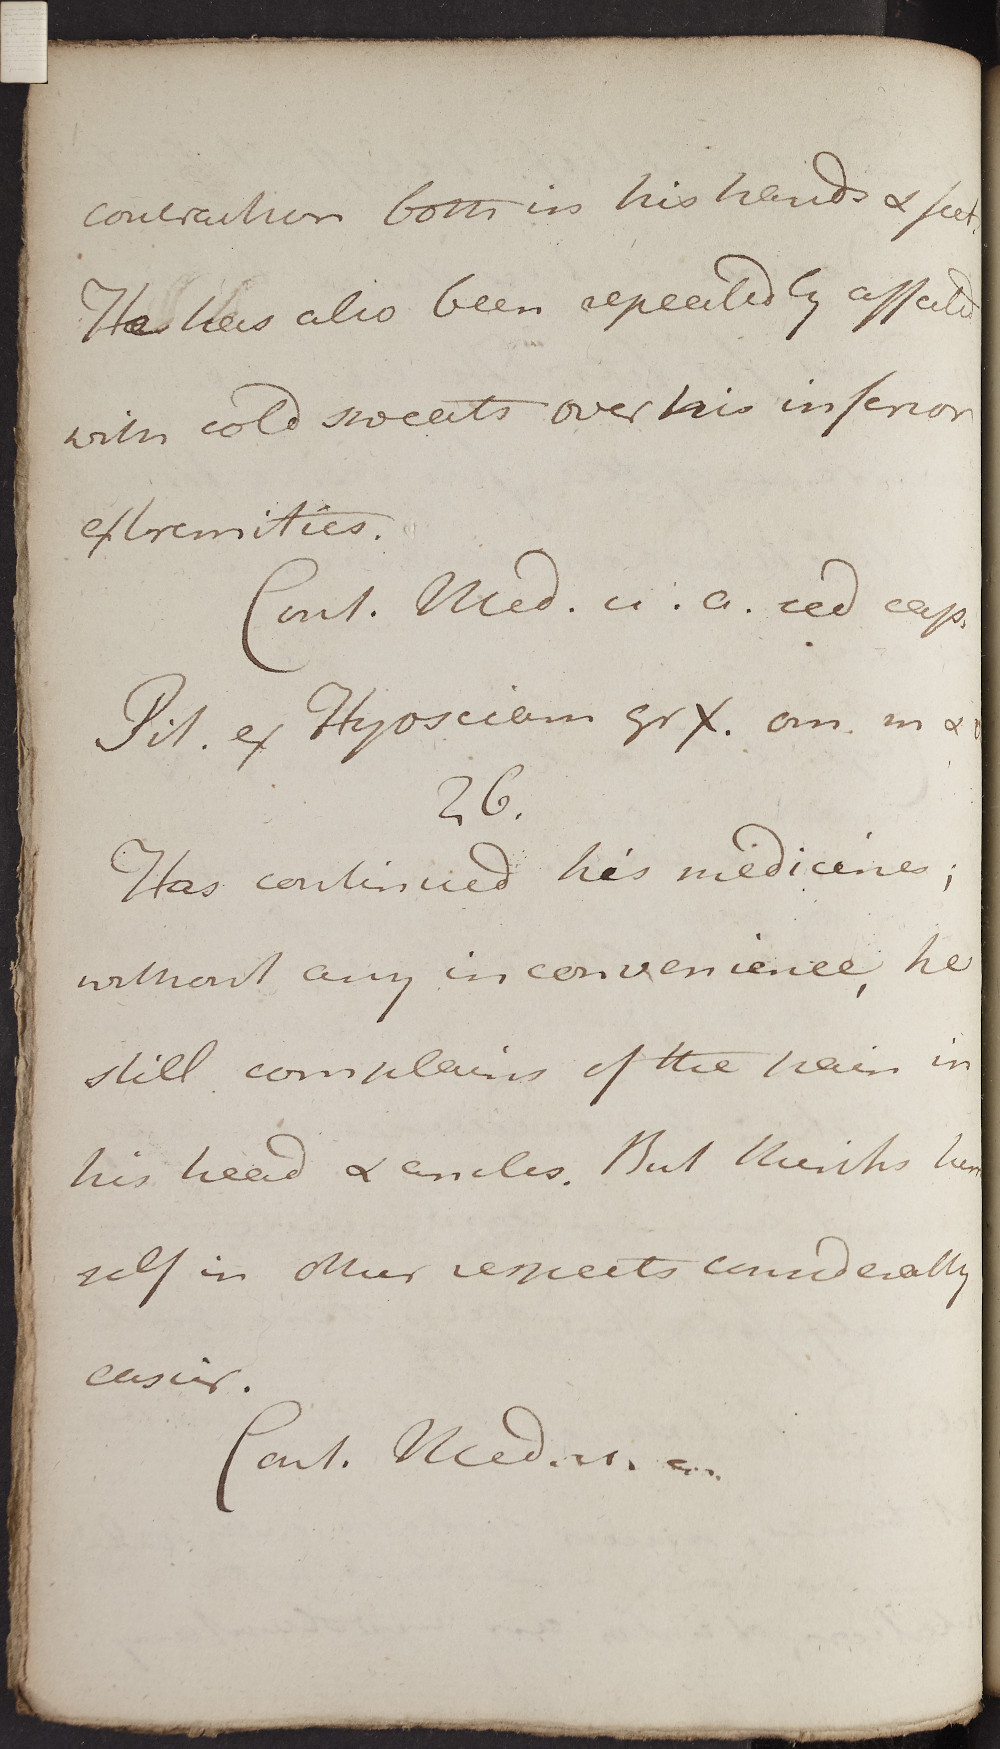 contraction both in his hands & feet.
He has also been repeatedly affected
with cold sweats over his inferior
extremities.
Cont. Med. u. a. sed cap.
Pil. ex Hyosciam gr X. om. m &
26.
Has continued his medicines;
without any inconvenience, he
still complains of the pain in
his head & ancles. But thinks him
self in other respects considerably
easier.
Cont. Med. u. a.